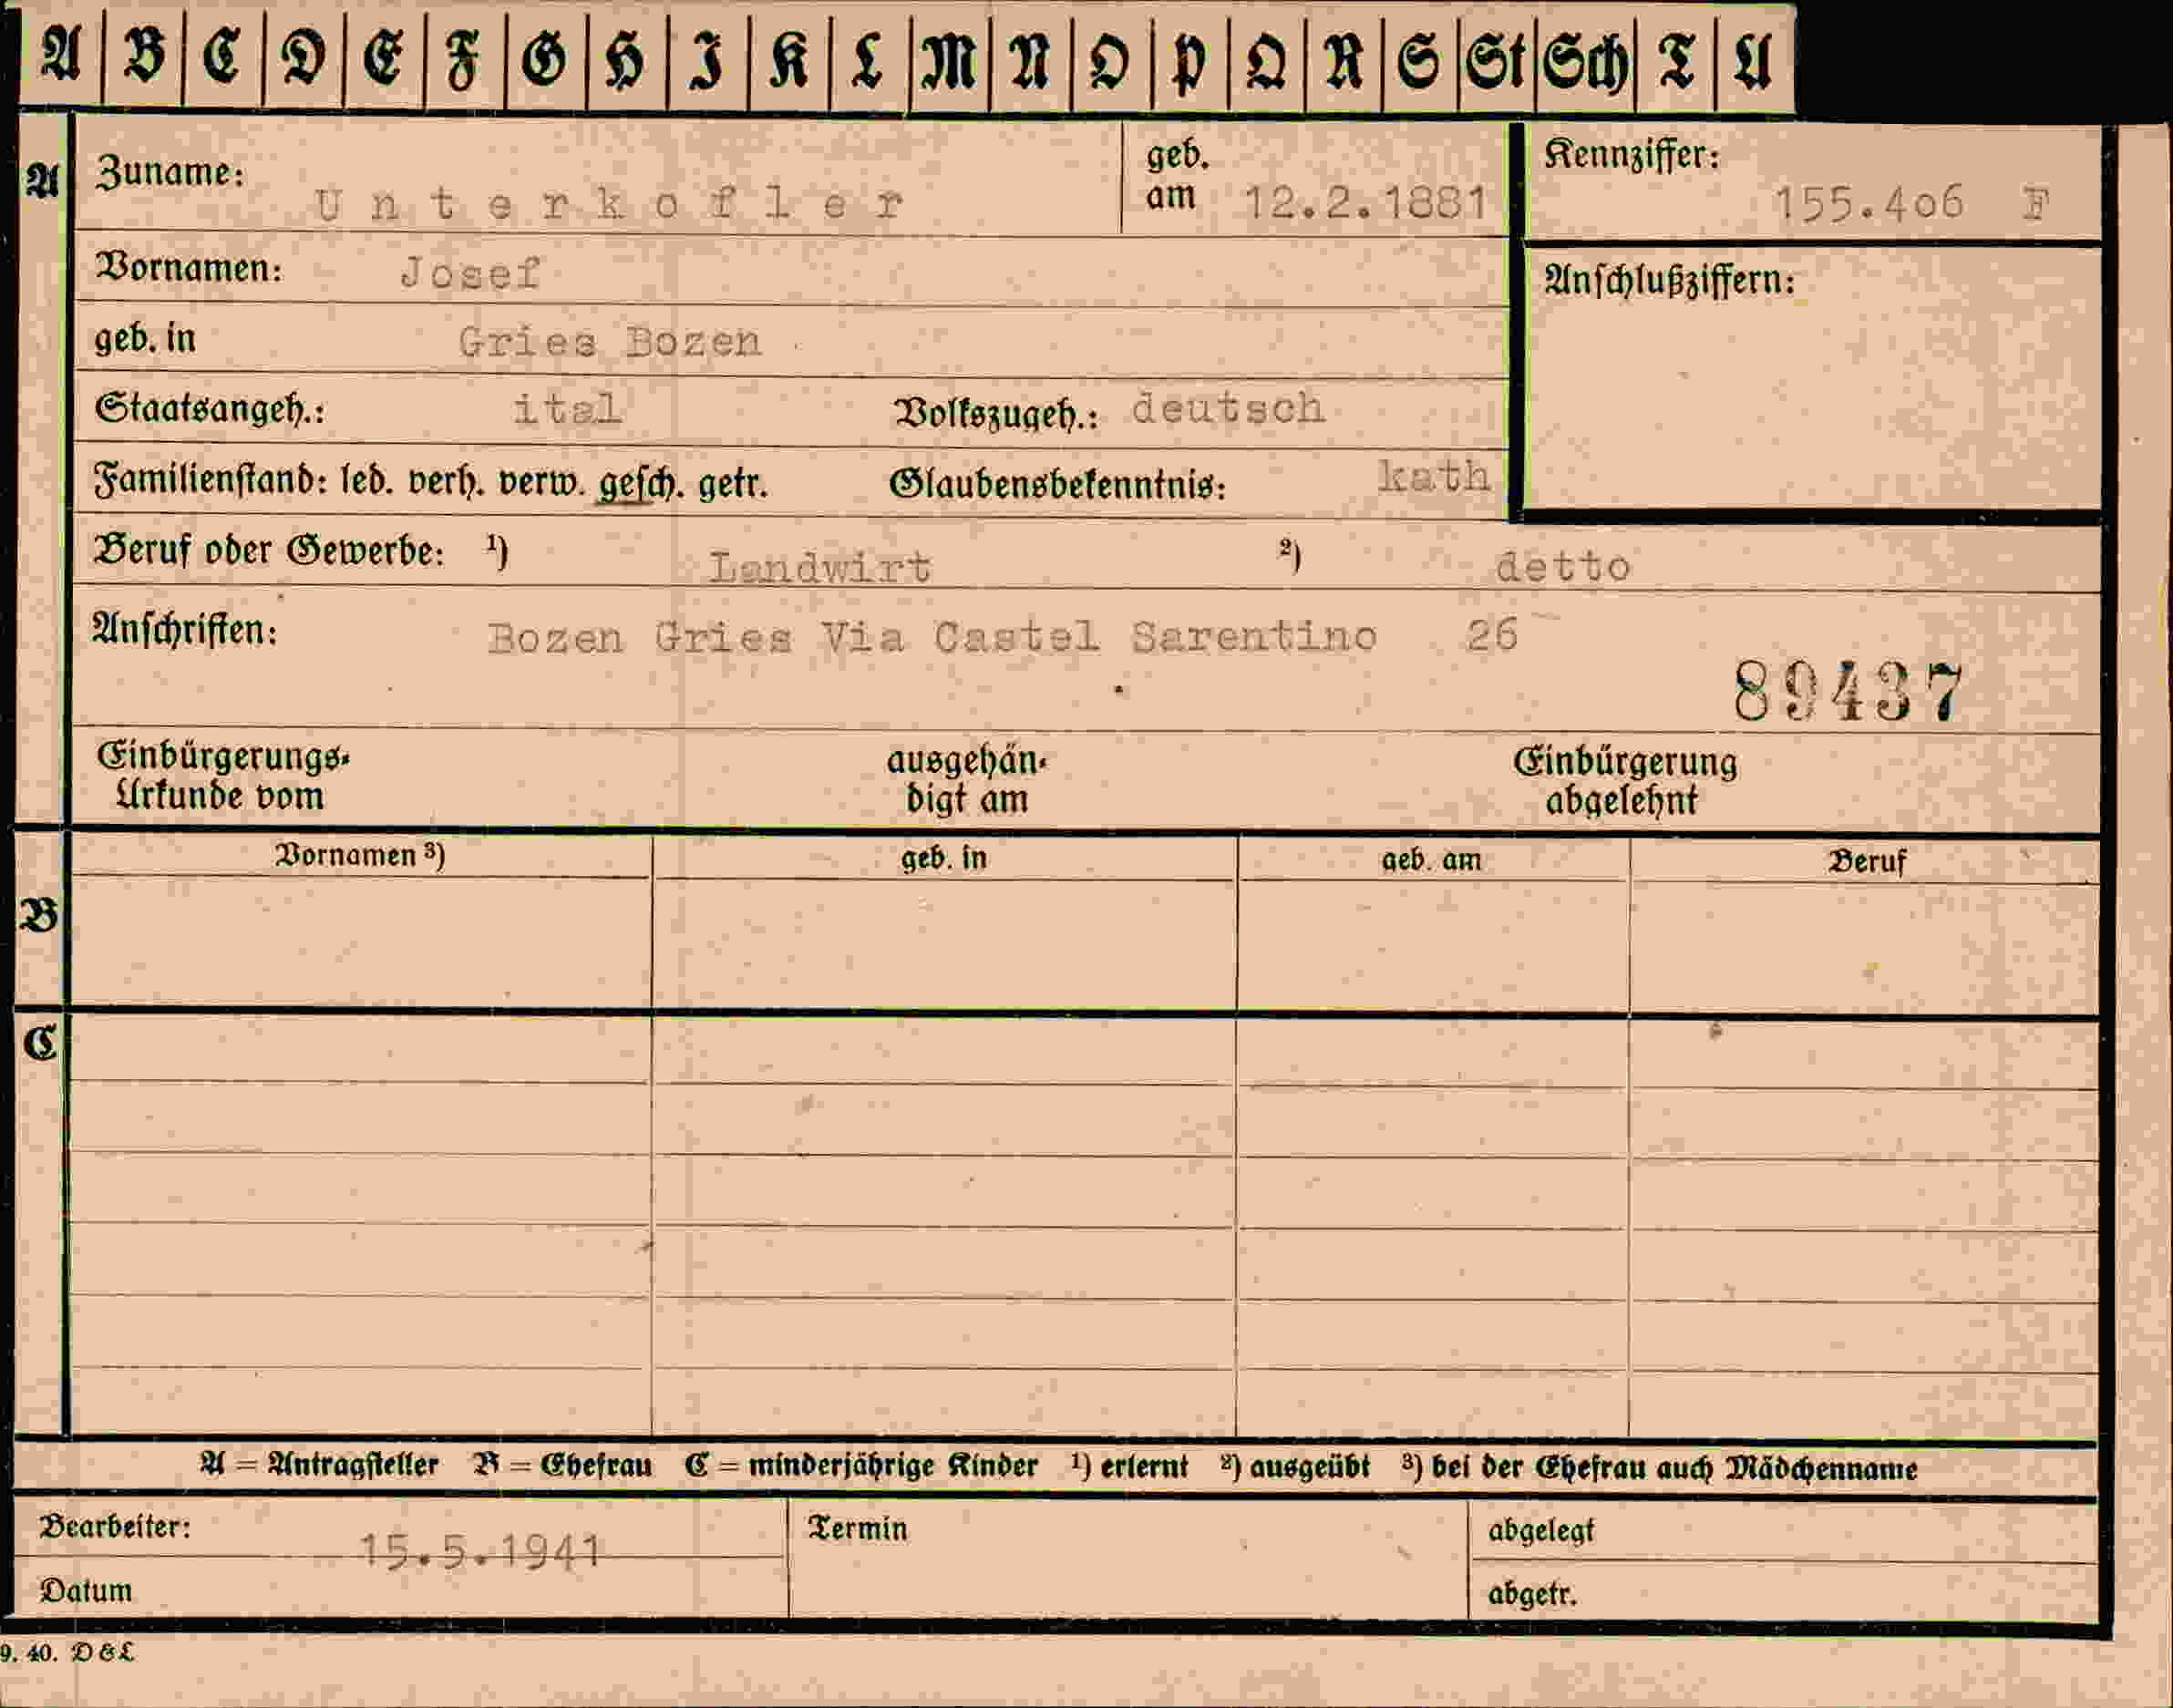 A B C D E F G H I K L M N O P Q R S St Sch T U
A Zuname: Unterkofler geb. am 12.2.1881 Kennziffer: 155.4o6 F
Vornamen: Josef
Anschlußziffern:
geb. in Gries Bozen
Staatsangeh.: ital Volkszugeh.: deutsch
Familienstand: led. verh. verw. gesch. getr. Glaubensbekenntnis: kath
Beruf oder Gewerbe: ¹) Landwirt ²) detto
Anschriften: Bozen Gries Via Castel Sarentino 26
89437
Einbürgerungs- ausgehän- Einbürgerung
Urkunde vom digt am abgelehnt
Vornamen ³) geb. in geb. am Beruf
B
C
A = Antragsteller B = Ehefrau C = minderjährige Kinder ¹) erlernt ²) ausgeübt ³) bei der Ehefrau auch Mädchenname
Bearbeiter: Termin abgelegt
15.5.1941
Datum abgetr.
9. 40. D & L